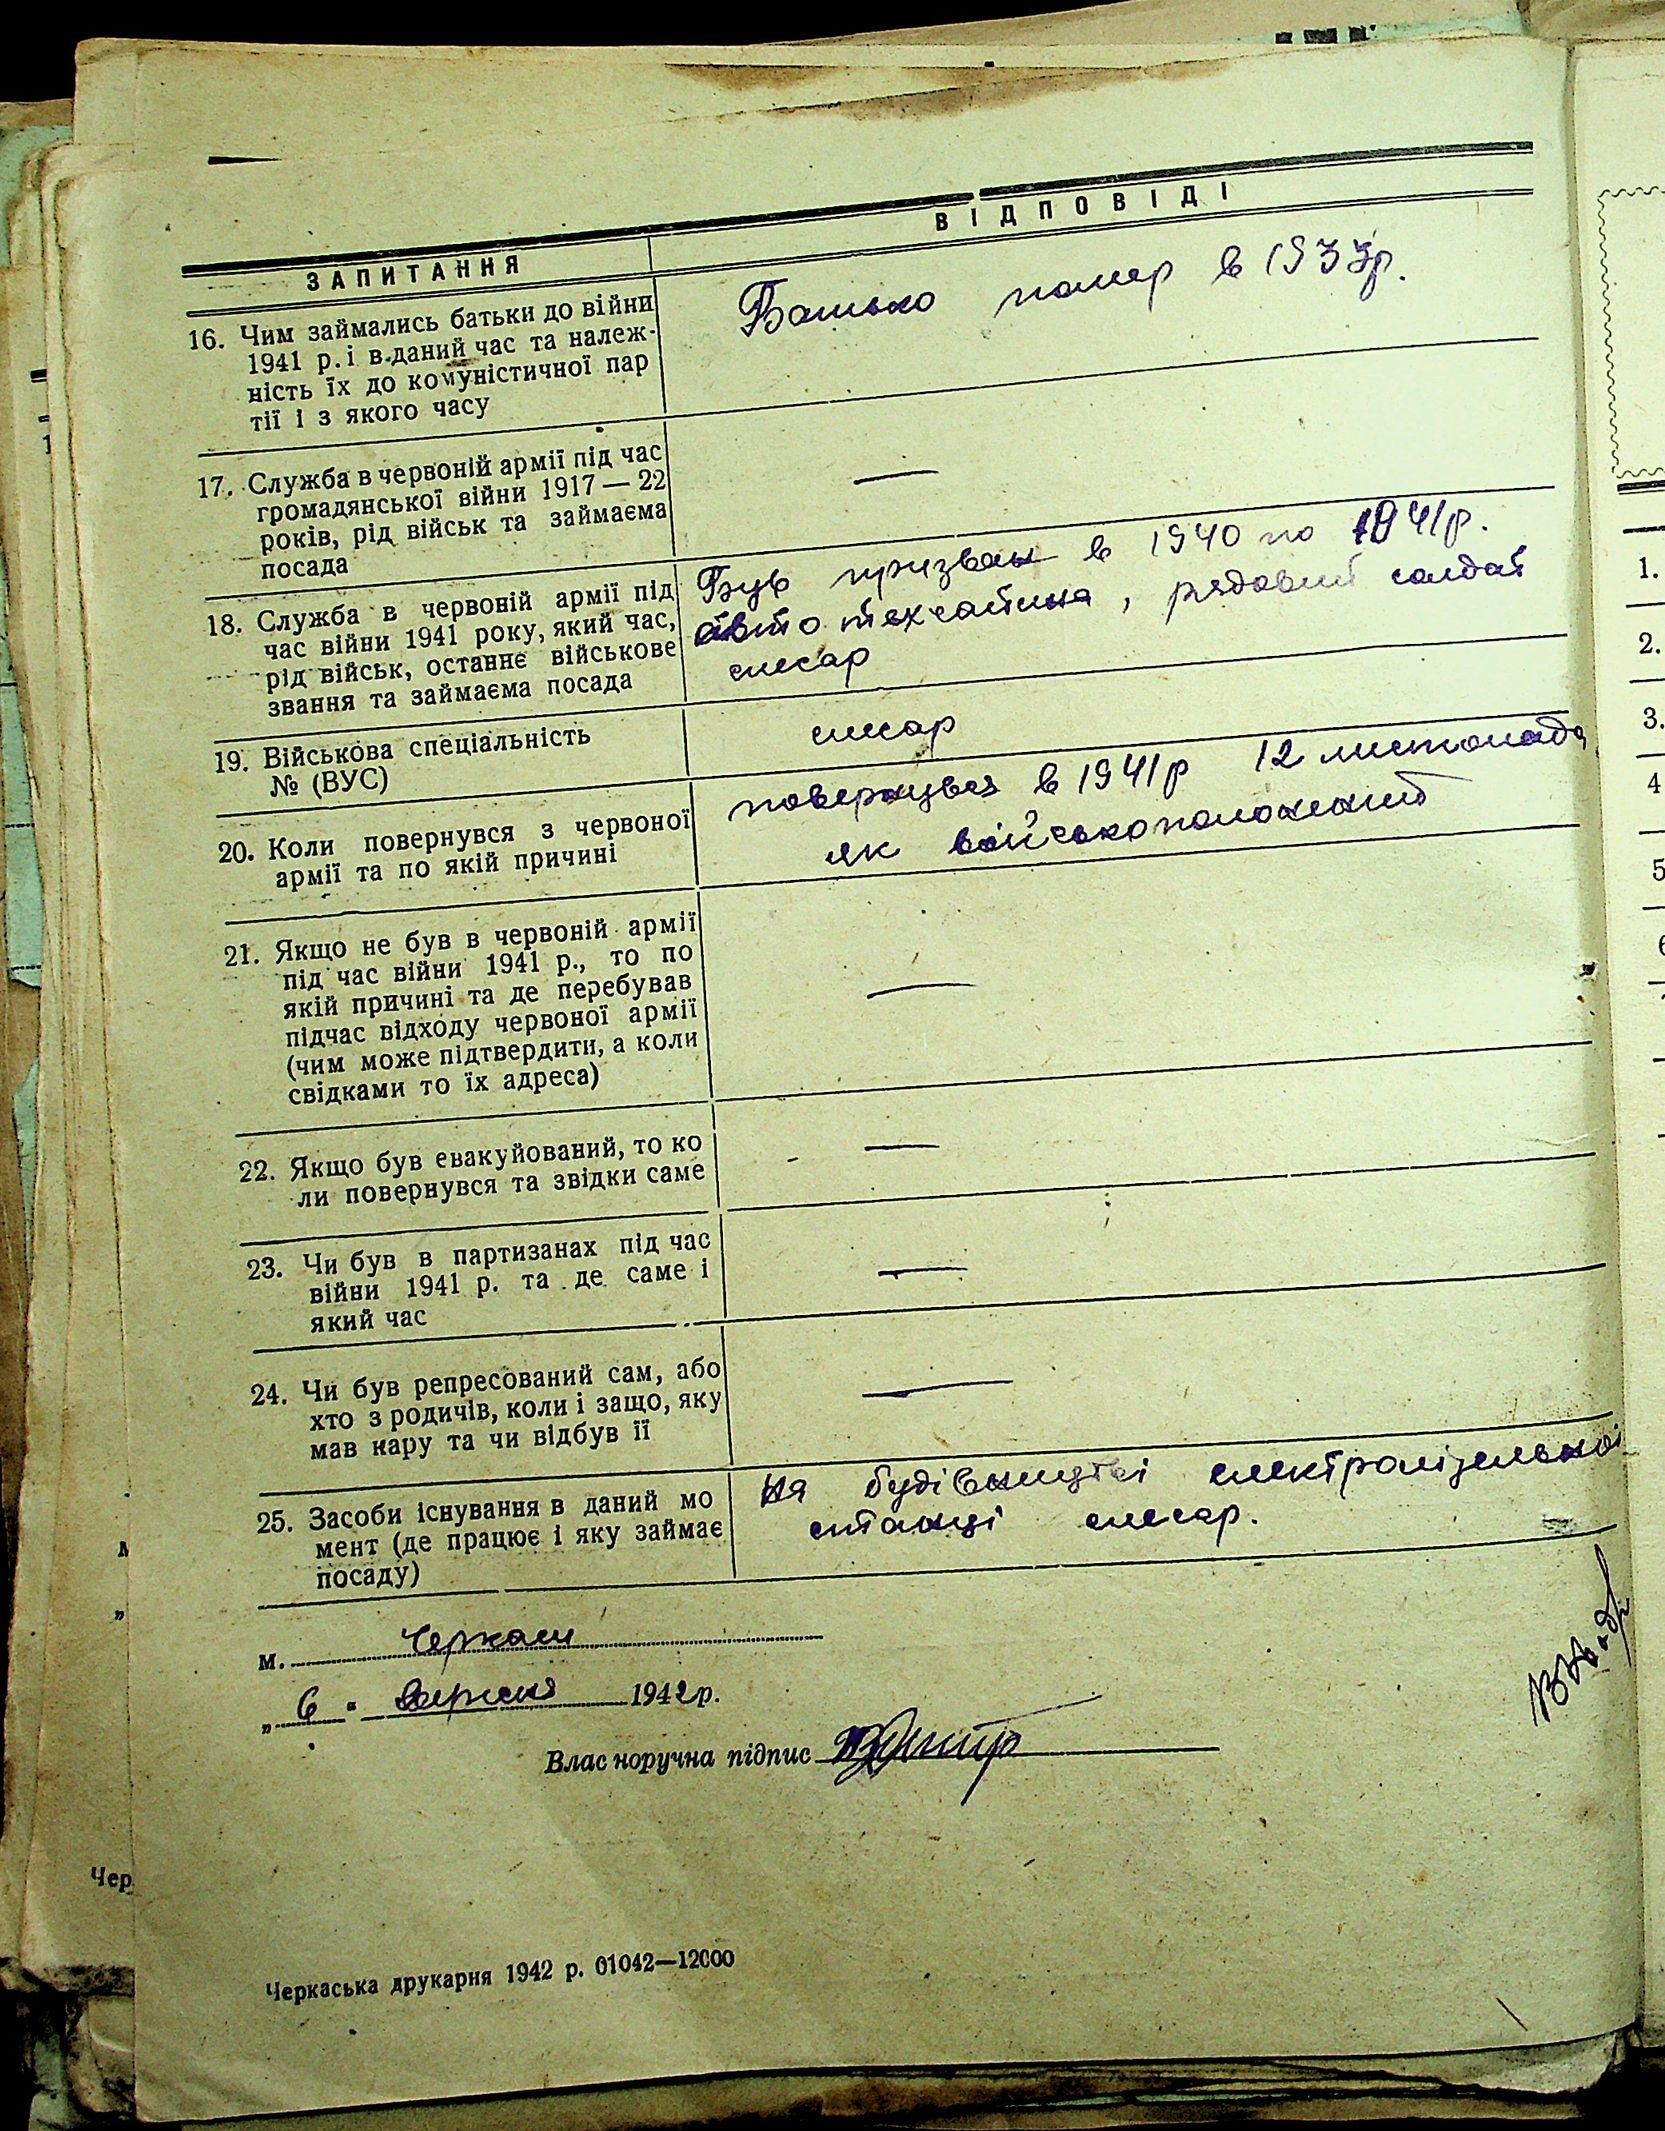 ЗАПИТАННЯ
ВІДПОВІДІ
16. Чим займались батьки до війни
1941 р. і в даний час та належ-
ність їх до комуністичної пар
тії і з якого часу
Батько помер в 1933р.
17. Служба в червоній армії під час
громадянської війни 1917 — 22
років, рід військ та займаєма
посада
—
18. Служба в червоній армії під
час війни 1941 року, який час,
рід військ, останнє військове
звання та займаєма посада
Був призван в 1940 по 1941р.
автотехчастина, рядовий солдат
слесар
19. Військова спеціальність
№ (ВУС)
слесар
20. Коли повернувся з червоної
армії та по якій причині
повернувся в 1941р 12 листопада
як військополонений
21. Якщо не був в червоній армії
під час війни 1941 р., то по
якій причині та де перебував
підчас відходу червоної армії
(чим може підтвердити, а коли
свідками то їх адреса)
—
22. Якщо був евакуйований, то ко
ли повернувся та звідки саме
—
23. Чи був в партизанах під час
війни 1941 р. та де саме і
який час
—
24. Чи був репресований сам, або
хто з родичів, коли і защо, яку
мав кару та чи відбув її
—
25. Засоби існування в даний мо
мент (де працює і яку займає
посаду)
на будівництві електродізельної
станції слесар.
м. Черкаси
„ 6 " вересня 1942 р.
Власноручна підпис
Черкаська друкарня 1942 р. 01042—12000
Чер
1.
2.
3.
4
5
6